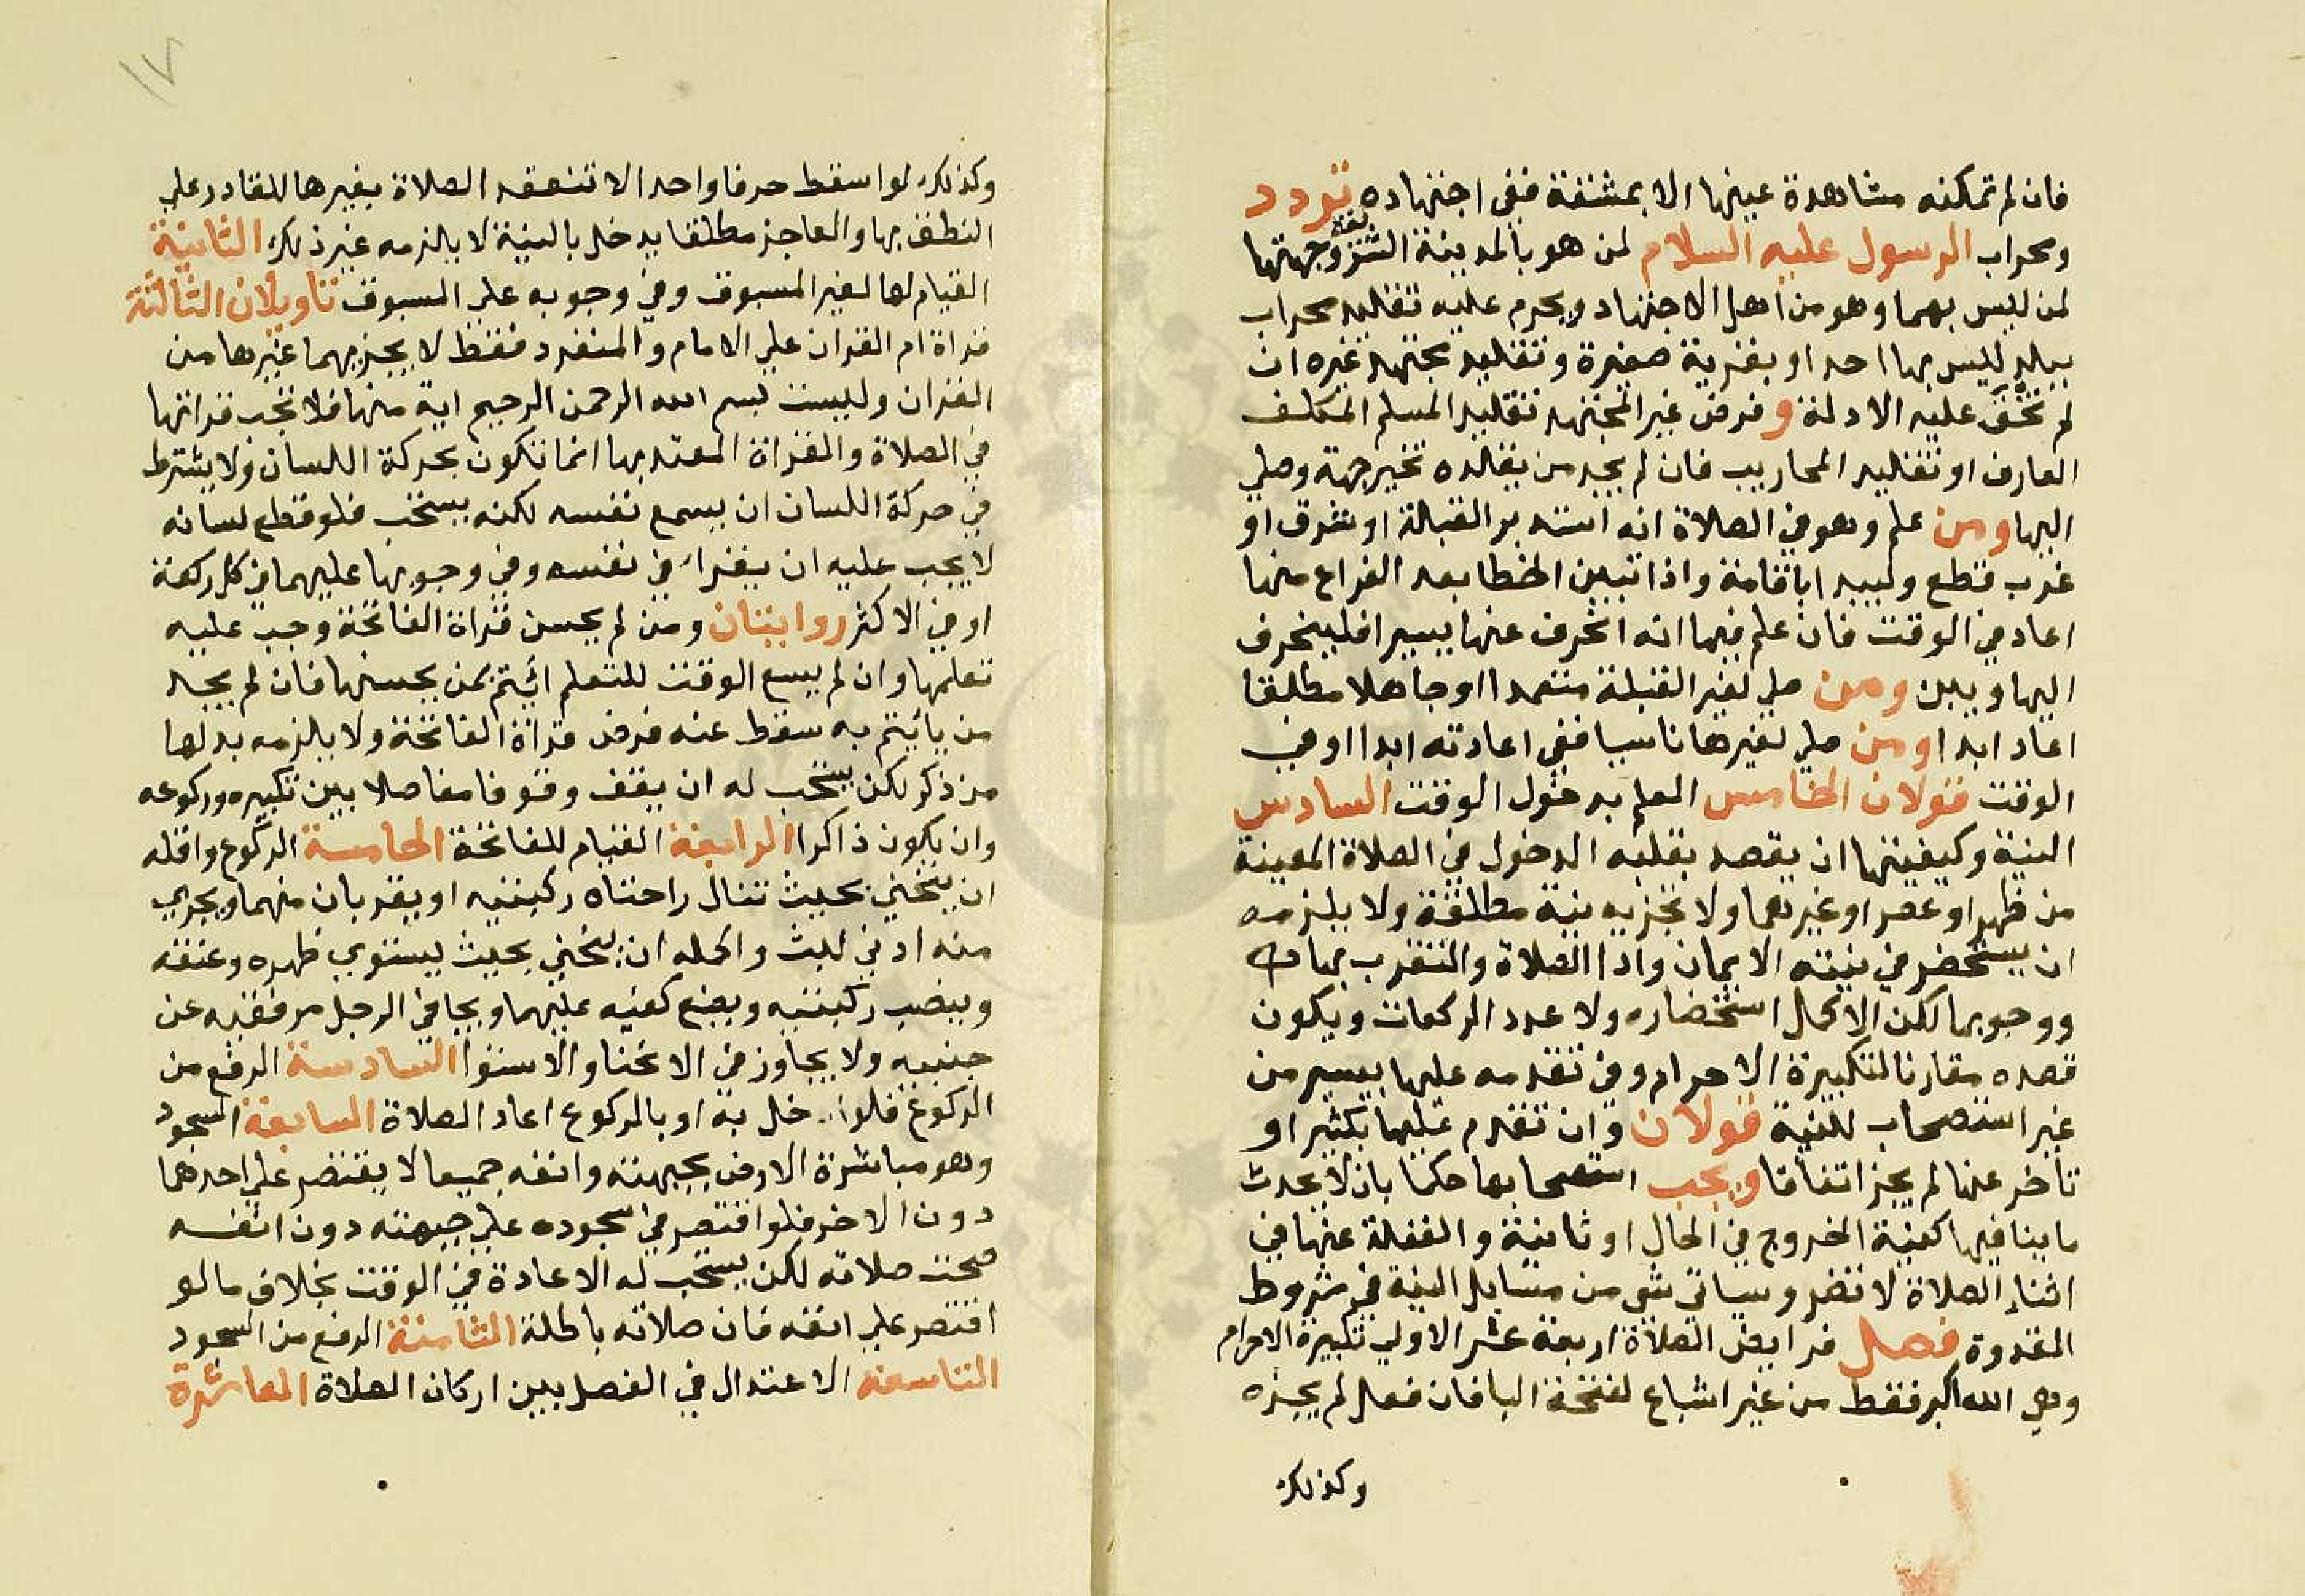 فان لم تمكنه مشاهدة عينها الا بمشقة ففي اجتهاده تردد
ومحراب الرسول عليه السلام لمن هو بالمدينة الشريفة وجهتها
لمن ليس بهما وهو من اهل الاجتهاد ويحرم عليه تقليد محراب
ببلد ليس بها احد او بقرية صغيرة وتقليد مجتهد غيره ان
لم تخف عليه الادلة وفرض غير المجتهد تقليد المسلم المكلف
العارف او تقليد المحاريب فان لم يجد من يقلده تخير جهة وصلي
اليها ومن علم وهو في الصلاة انه استدبر القبلة او شرق او
غرب قطع ويبتد اباقامة واذا تبين الخطا بعد الفراغ منها
اعاد في الوقت فان علم فيها انه انحرف عنها يسيرا فلينحرف
اليها ويبن ومن صلي لغير القبلة متعمدا او جاهلا مطلقا
اعاد ابدا ومن صلي لغيرها ناسيا ففي اعادته ابدا او في
الوقت قولان الخامس العلم بدخول الوقت السادس
النية وكيفيتها ان يقصد بقلبه الدخول في الصلاة المعينة
من ظهر او عصر او غيرهما ولا تجزيه نية مطلقة ولا يلزمه
ان يستحضر في نيته الايمان واداء الصلاة والتقرب بها لله
ووجوبها لكن الاكمل استحضاره ولا عدد الركعات ويكون
قصده مقارنا لتكبيرة الاحرام وفي تقدمه عليها بيسير من
غير استصحاب للنية قولان وان تقدم عليها بكثير او
تاخر عنها لم يجز اتفاقا ويجب استصحابها حكما بان لا يحدث
ما ينافيها كنية الخروج في الحال او ثانية والغفلة عنها في
اثناء الصلاة لا تضر وسياتي شي من مسايل النية في شروط
القدوة فصل فرايض الصلاة اربعة عشر الاولي تكبيرة الاحرام
وهي الله اكبر فقط من غير اشباع لفتحة البا فان فعل لم يجزه
وكذلك
١٧
وكذلك لو اسقط حرفا واحدا لا تنعقد الصلاة بغيرها للقادر علي
النطق بها والعاجز مطلقا يدخل بالنية لا يلزمه غير ذلك الثانية
القيام لها لغير المسبوق وفي وجوبه علي المسبوق تاويلان الثالثة
قراة ام القران علي الامام والمنفرد فقط لا يجزيهما غيرها من
القران وليست بسم الله الرحمن الرحيم اية منها فلا تجب قراتها
في الصلاة والقراة المعتد بها انما تكون بحركة اللسان ولا يشترط
في حركة اللسان ان يسمع نفسه لكنه يستحب فلو قطع لسانه
لا يجب عليه ان يقرا في نفسه وفي وجوبها عليهما في كل ركعة
او في الاكثر روايتان ومن لم يحسن قراة الفاتحة وجب عليه
تعلمها وان لم يسع الوقت للتعلم ائتم بمن يحسنها فان لم يجد
من يائتم به سقط عنه فرض قراة الفاتحة ولا يلزمه بدلها
من ذكر لكن يستحب له ان يقف وقوفا ما فاصلا بين تكبيره وركوعه
وان يكون ذاكرا الرابعة القيام للفاتحة الخامسة الركوع واقله
ان ينحني بحيث تنال راحتاه ركبتيه او يقربان منهما ويجري
منه ادني لبث واكمله ان ينحني بحيث يستوي ظهره وعنقه
وينصب ركبتيه ويضع كفيه عليهما ويجافي الرجل مرفقيه عن
جنبيه ولا يجاوز في الانحنا والاستوا السادسة الرفع من
الركوع فلو اخل به او بالركوع اعاد الصلاة السابعة السجود
وهو مباشرة الارض بجبهته وانفه جميعا لا يقتصر علي احدهما
دون الاخر فلو اقتصر في سجوده علي جبهته دون انفسه
صحت صلاته لكن يستحب له الاعادة في الوقت بخلاف ما لو
اقتصر علي انفه فان صلاته باطلة الثامنة الرفع من السجود
التاسعة الاعتدال في الفصل بين اركان الصلاة العاشرة